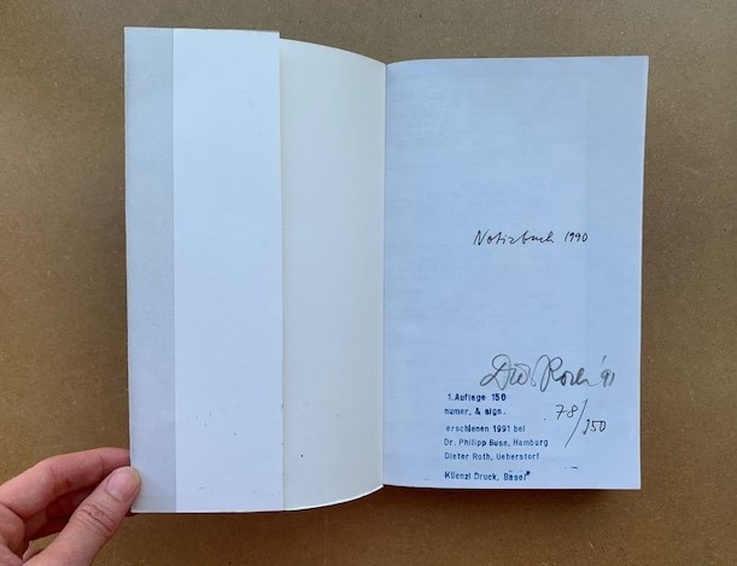 Notizbuch 1990
Diet. Roth '91
1.Auflage 150
numer. & sign.
78/150
erschienen 1991 bei
Dr. Philipp Buse, Hamburg
Dieter Roth, Ueberstorf
Küenzl Druck, Basel